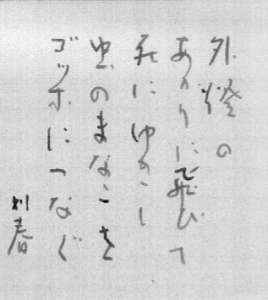 外燈の
あかりに飛びて
死にゆきし
虫のまなこを
ゴッホにつなぐ
春